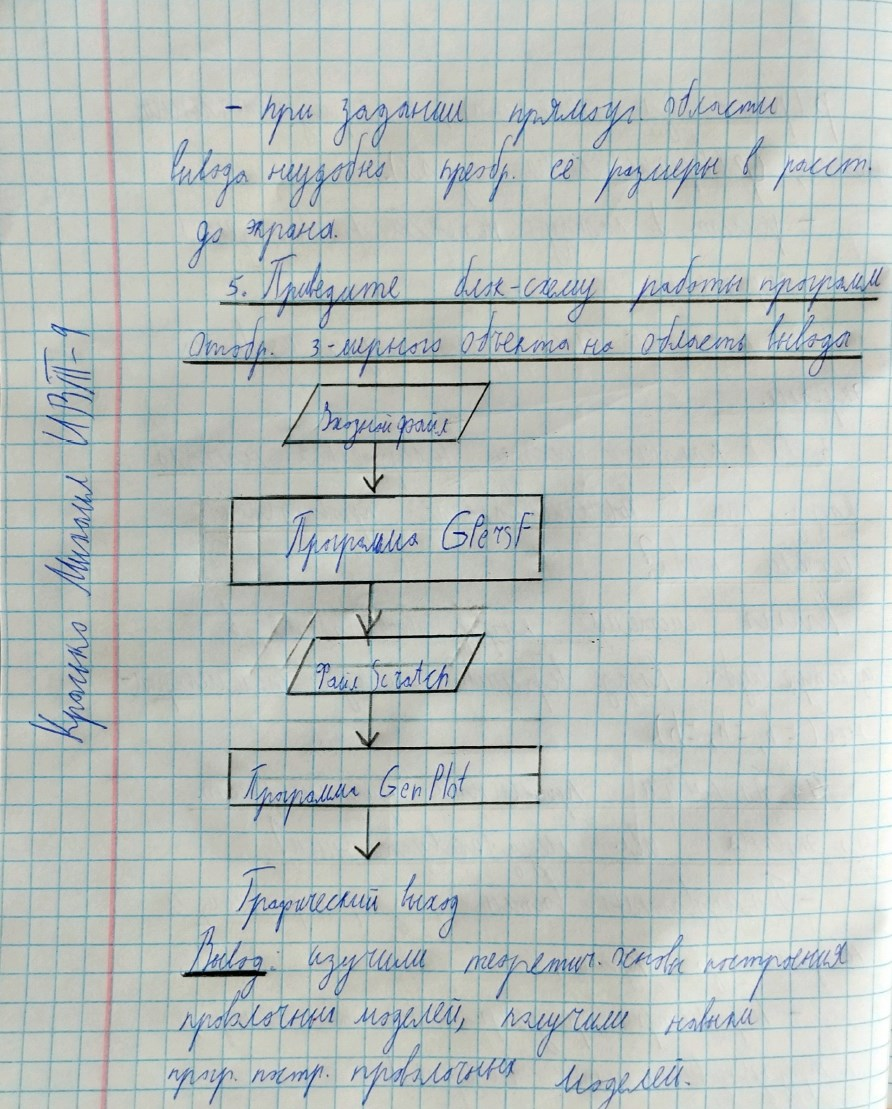 - при задании прямоуг. области
вывода неудобно преобр. её размеры в расст.
до экрана.
5. Приведите блок-схему работы программ
отобр. 3-мерного объекта на область вывода
Входной файл
Программа GPersF
Файл Scratch
Программа GenPlot
Графический выход
Вывод: изучили теоретич. основы построения
проволочных моделей, получили навыки
прогр. постр. проволочных моделей.
Михаил ИВТ-9